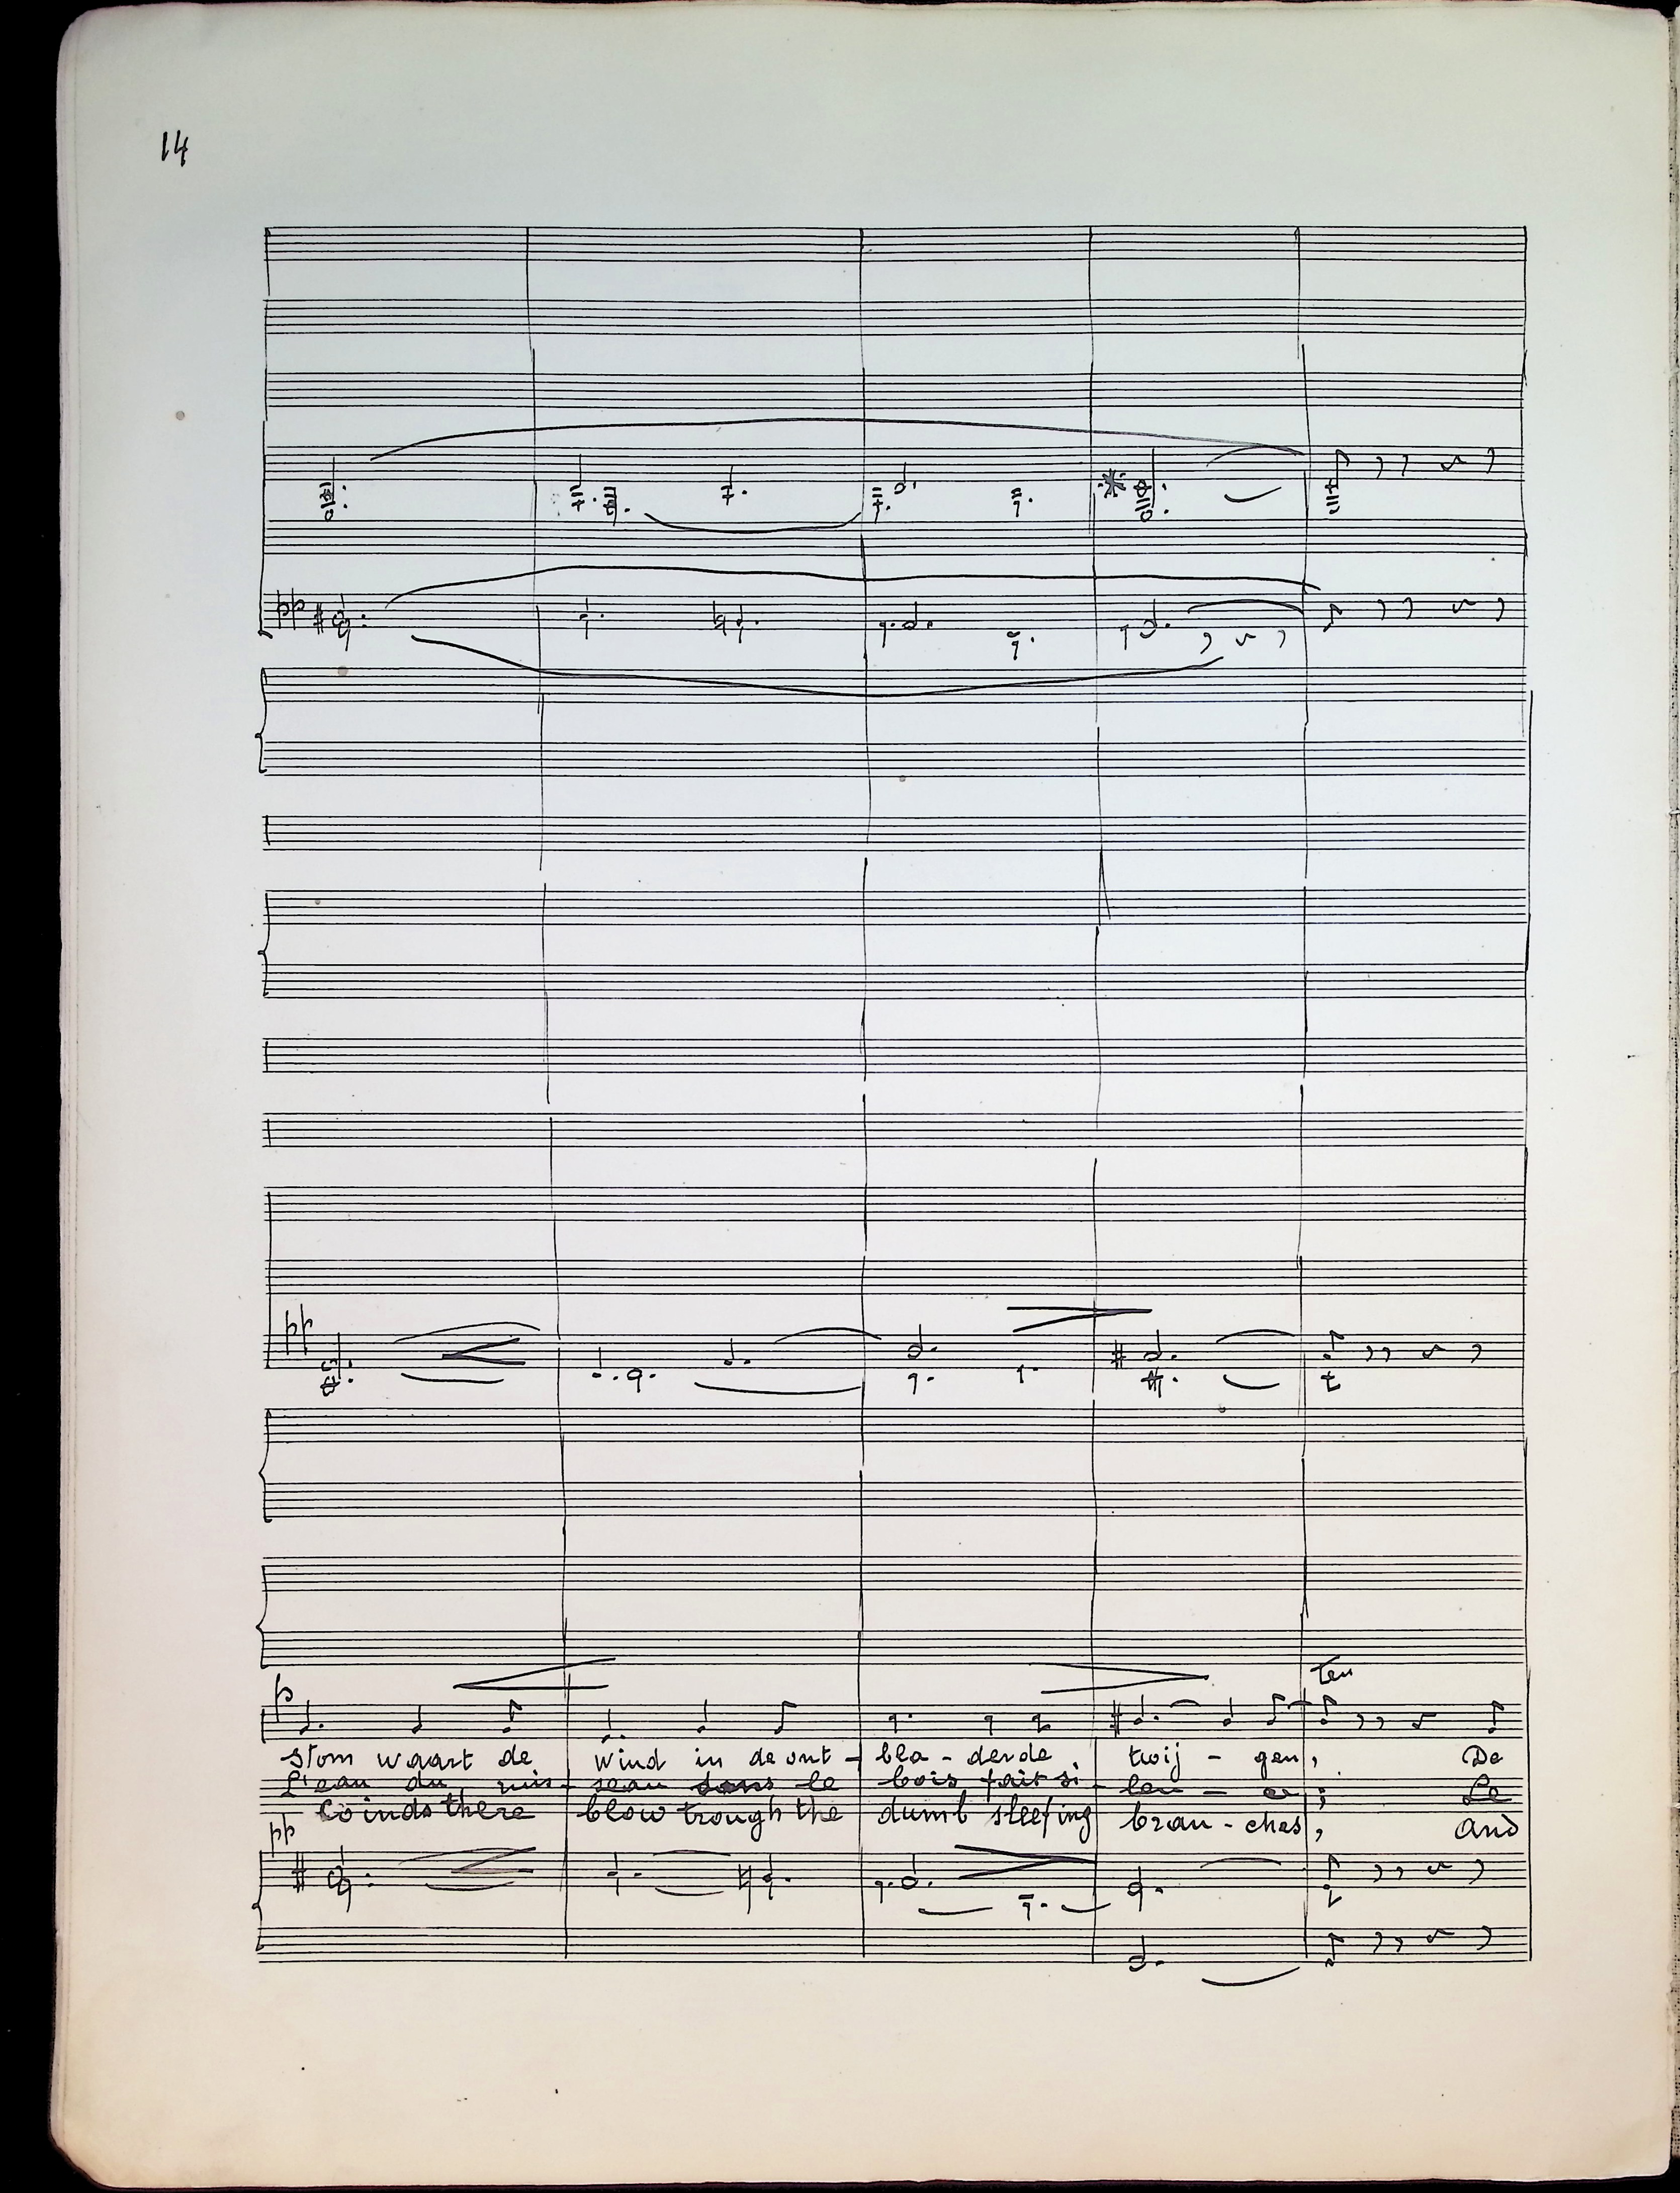 14
pp
pp
p
Ten
stom waart de wind in de ont - bla - derde twij - gen, De
L'eau du ruis - seau dans le bois fait si - len - ce ; Le
winds there blow trough the dumb sleeping bran - ches, And
pp